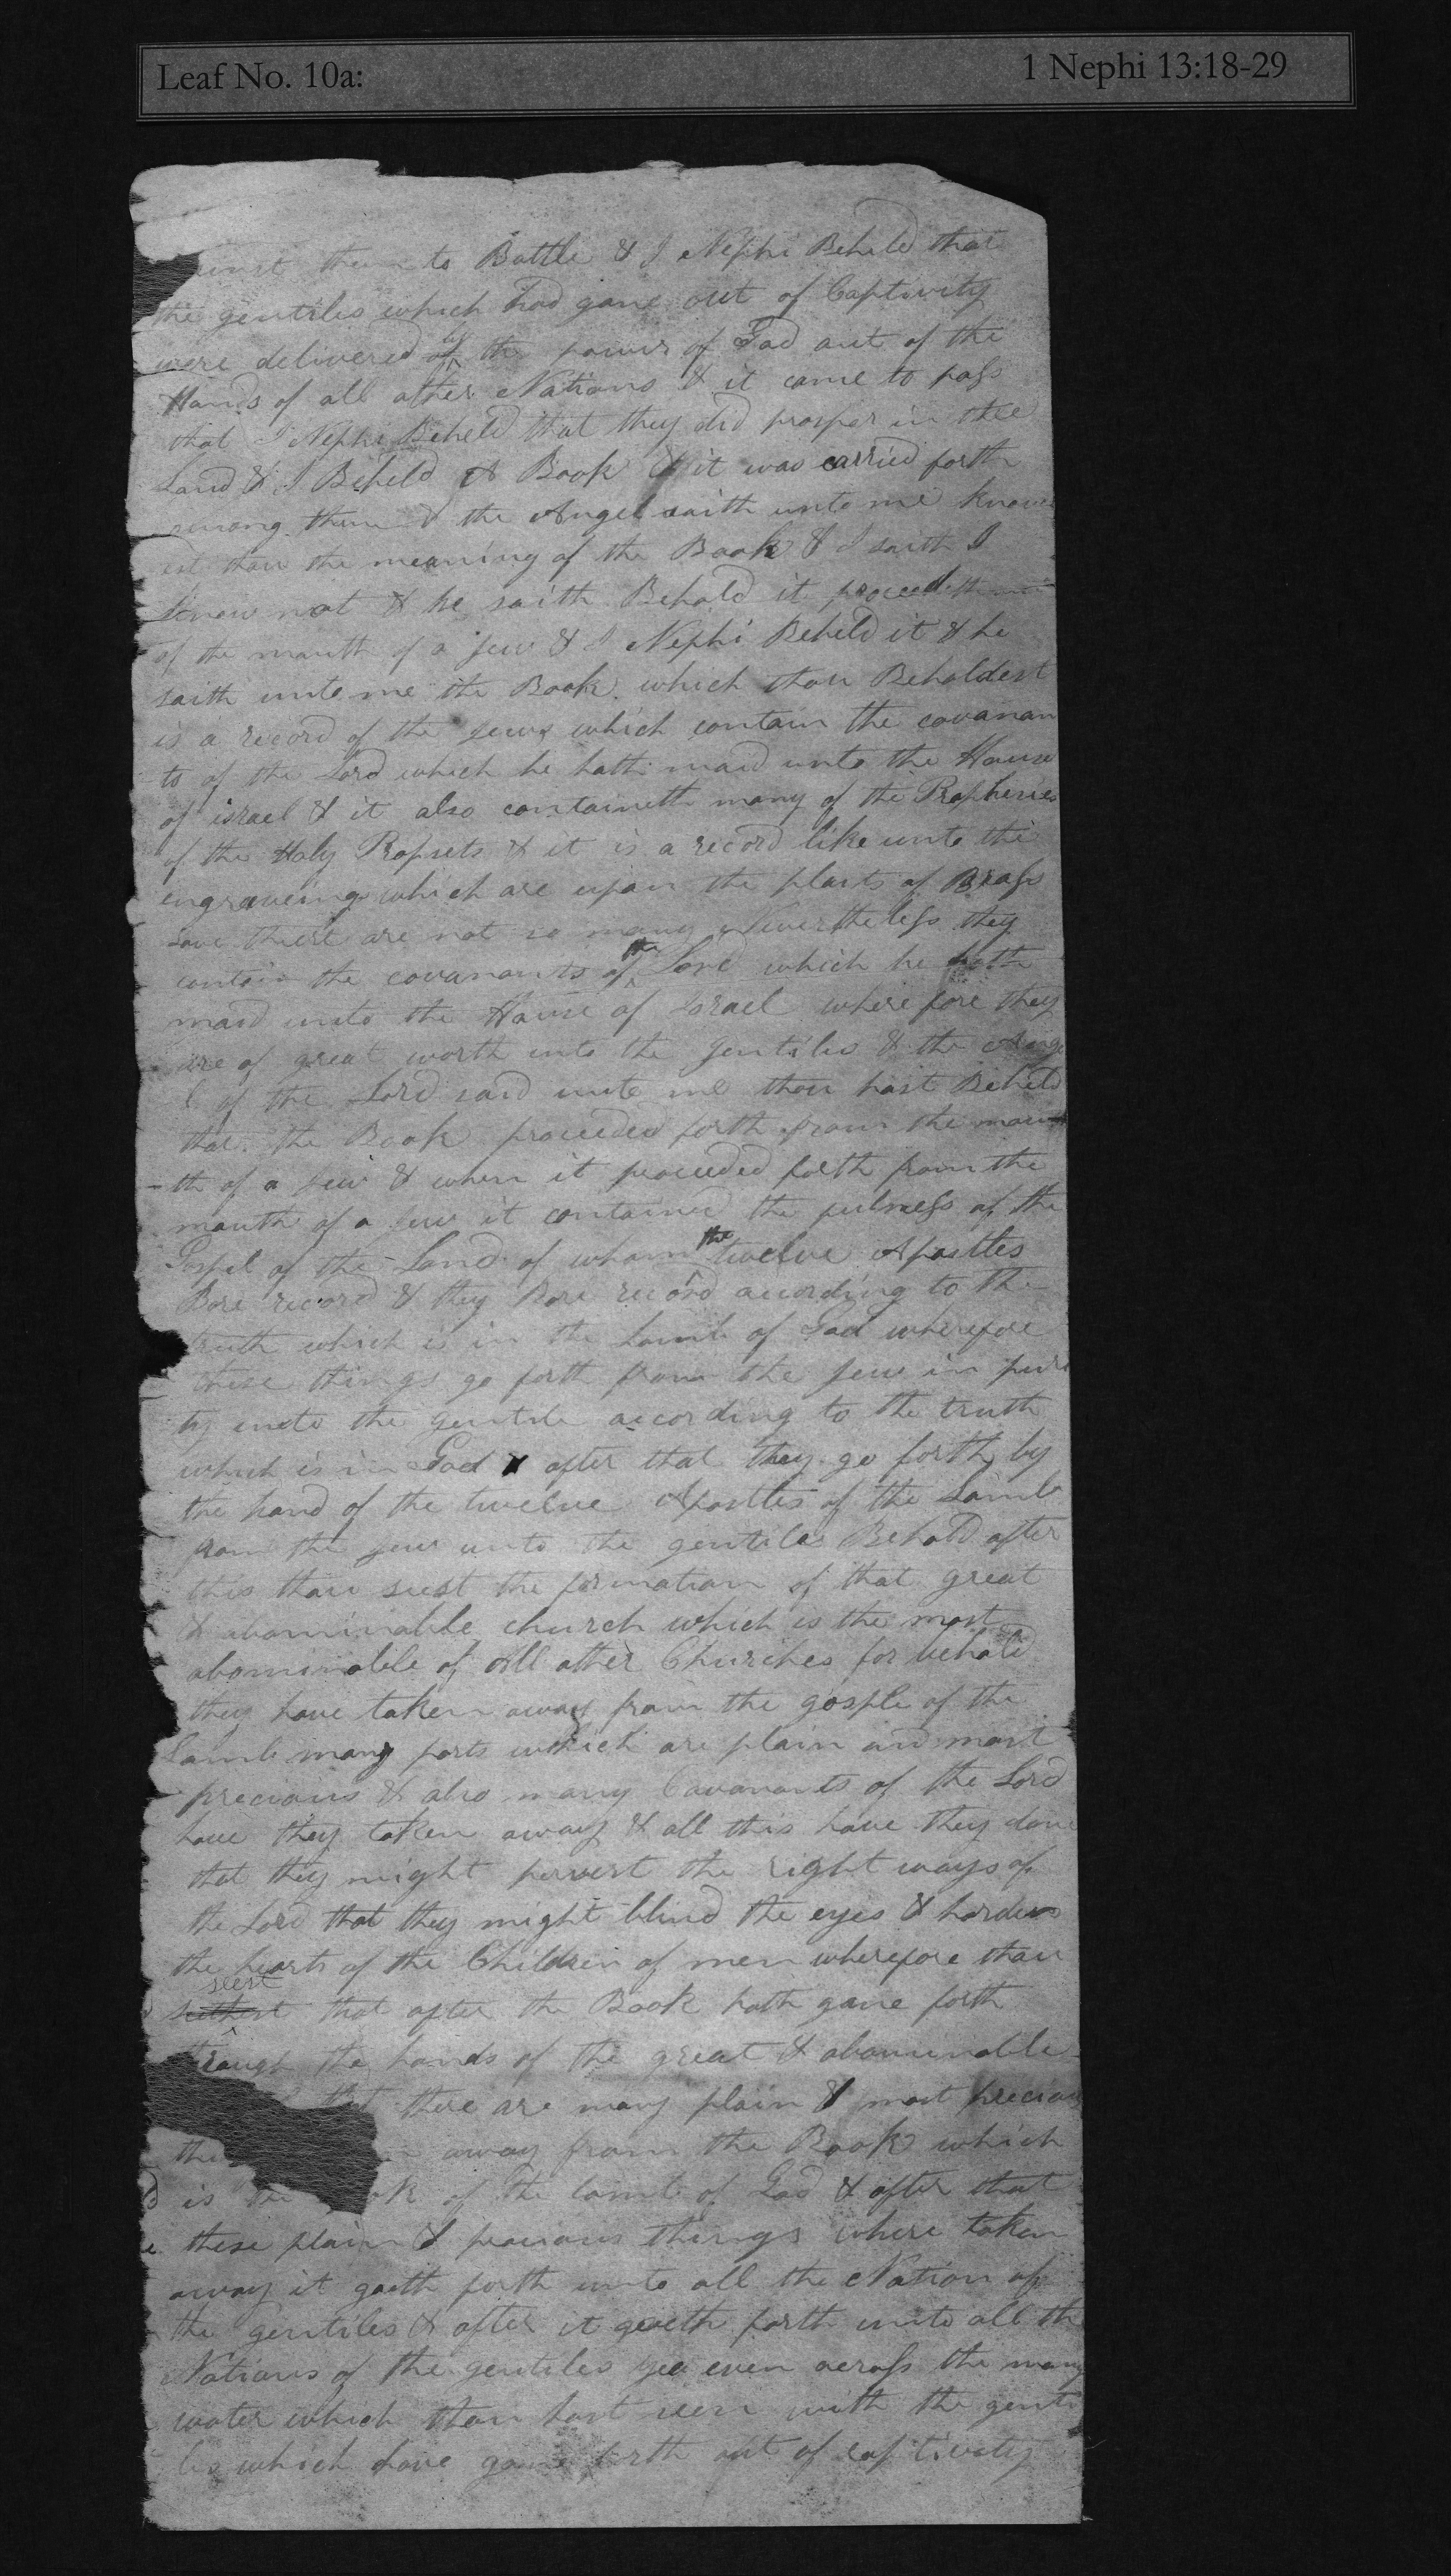 Leaf No. 10a: 1 Nephi 13:18-29
them to Battle & I Nephi Beheld that
the gentiles which had gone out of Captivity
were delivered by the power of God out of the
Hands of all other Nations & it came to pass
that I Nephi Beheld that they did prosper in the
Land & I Beheld A Book & it was carried forth
among them & the Angel saith unto me know
est thou the meaning of the Book & I saith I
know not & he saith Behold it proceedeth
of the mouth of a Jew & I Nephi Beheld it & he
saith unto me the Book which thou Beholdest
is a record of the Jews which contain the covanan
ts of the Lord which he hath maid unto the House
of israel & it also containeth many of the Prophesies
of the Holy Propsets & it is a record like unto the
engraveings which are upon the plaits of Brass
save there are not so many Nevertheless they
contain the covanants of the Lord which he hath
maid unto the House of Israel wherefore they
are of great worth unto the gentiles & the Ange
l of the Lord said unto me thou hast Beheld
that the Book proceded forth from the mou
-th of a Jew & when it proceeded forth from the
mouth of a Jew it contained the fulness of the
Gospel of the Land of whom the twelve Apostles
Bore record & they Bore record according to the
truth which is in the Lamb of God wherefore
these things go forth from the Jew in puri
ty unto the gentile according to the truth
which is in God & after that they go forth by
the hand of the twelve Apostles of the Lamb
from the Jew unto the gentiles Behold after
this thou seest the formation of that great
& abominable church which is the most
abominable of All other Churches for behold
they have taken away from the gosple of the
Lamb many parts which are plain and most
precious & also many Covanants of the Lord
have they taken away & all this have they done
that they might pervert the right ways of
the Lord that they might blind the eyes & harden
the hearts of the Children of men wherefore thou
seest
that after the Book hath gone forth
through the hands of the great & abominable
that there are many plain & most precious
away from the Book which
is the of the lamb of God & after that
these plain & precious things where taken
away it goeth forth unto all the Nation of
the gentiles & after it goeth forth unto all the
Nations of the gentiles yea even across the many
water which thou hast seen with the genti
les which have gone forth out of captivity